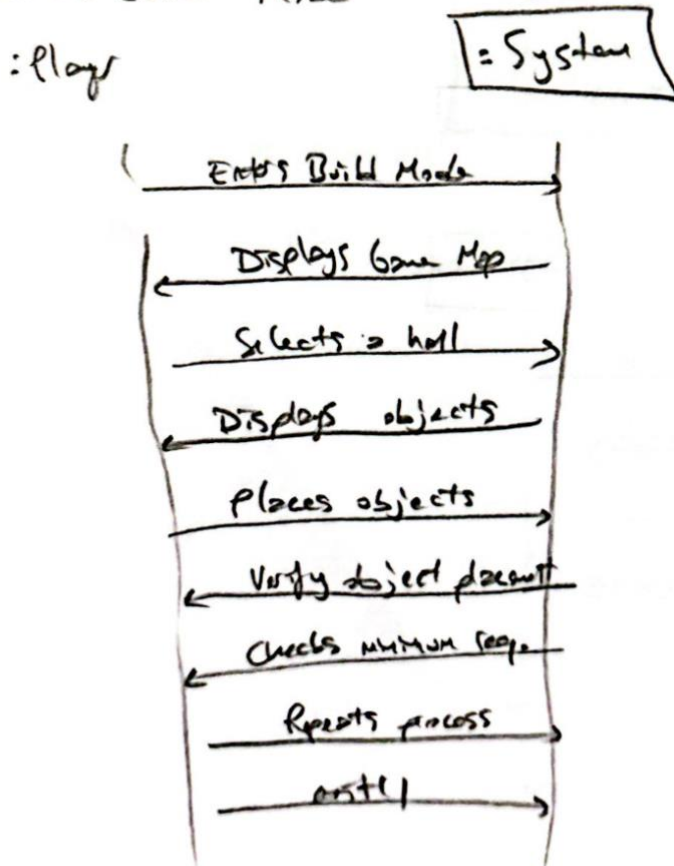 :Player
:System
Enters Build Mode
Displays Game Map
Selects a hall
Displays objects
Places objects
Verify object placement
Checks minimum req.
Repeats process